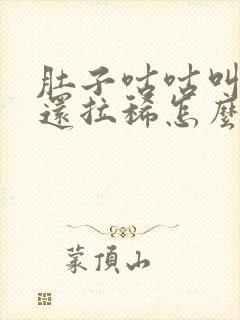 肚子咕咕叫
還拉稀怎麼
蒙頂山